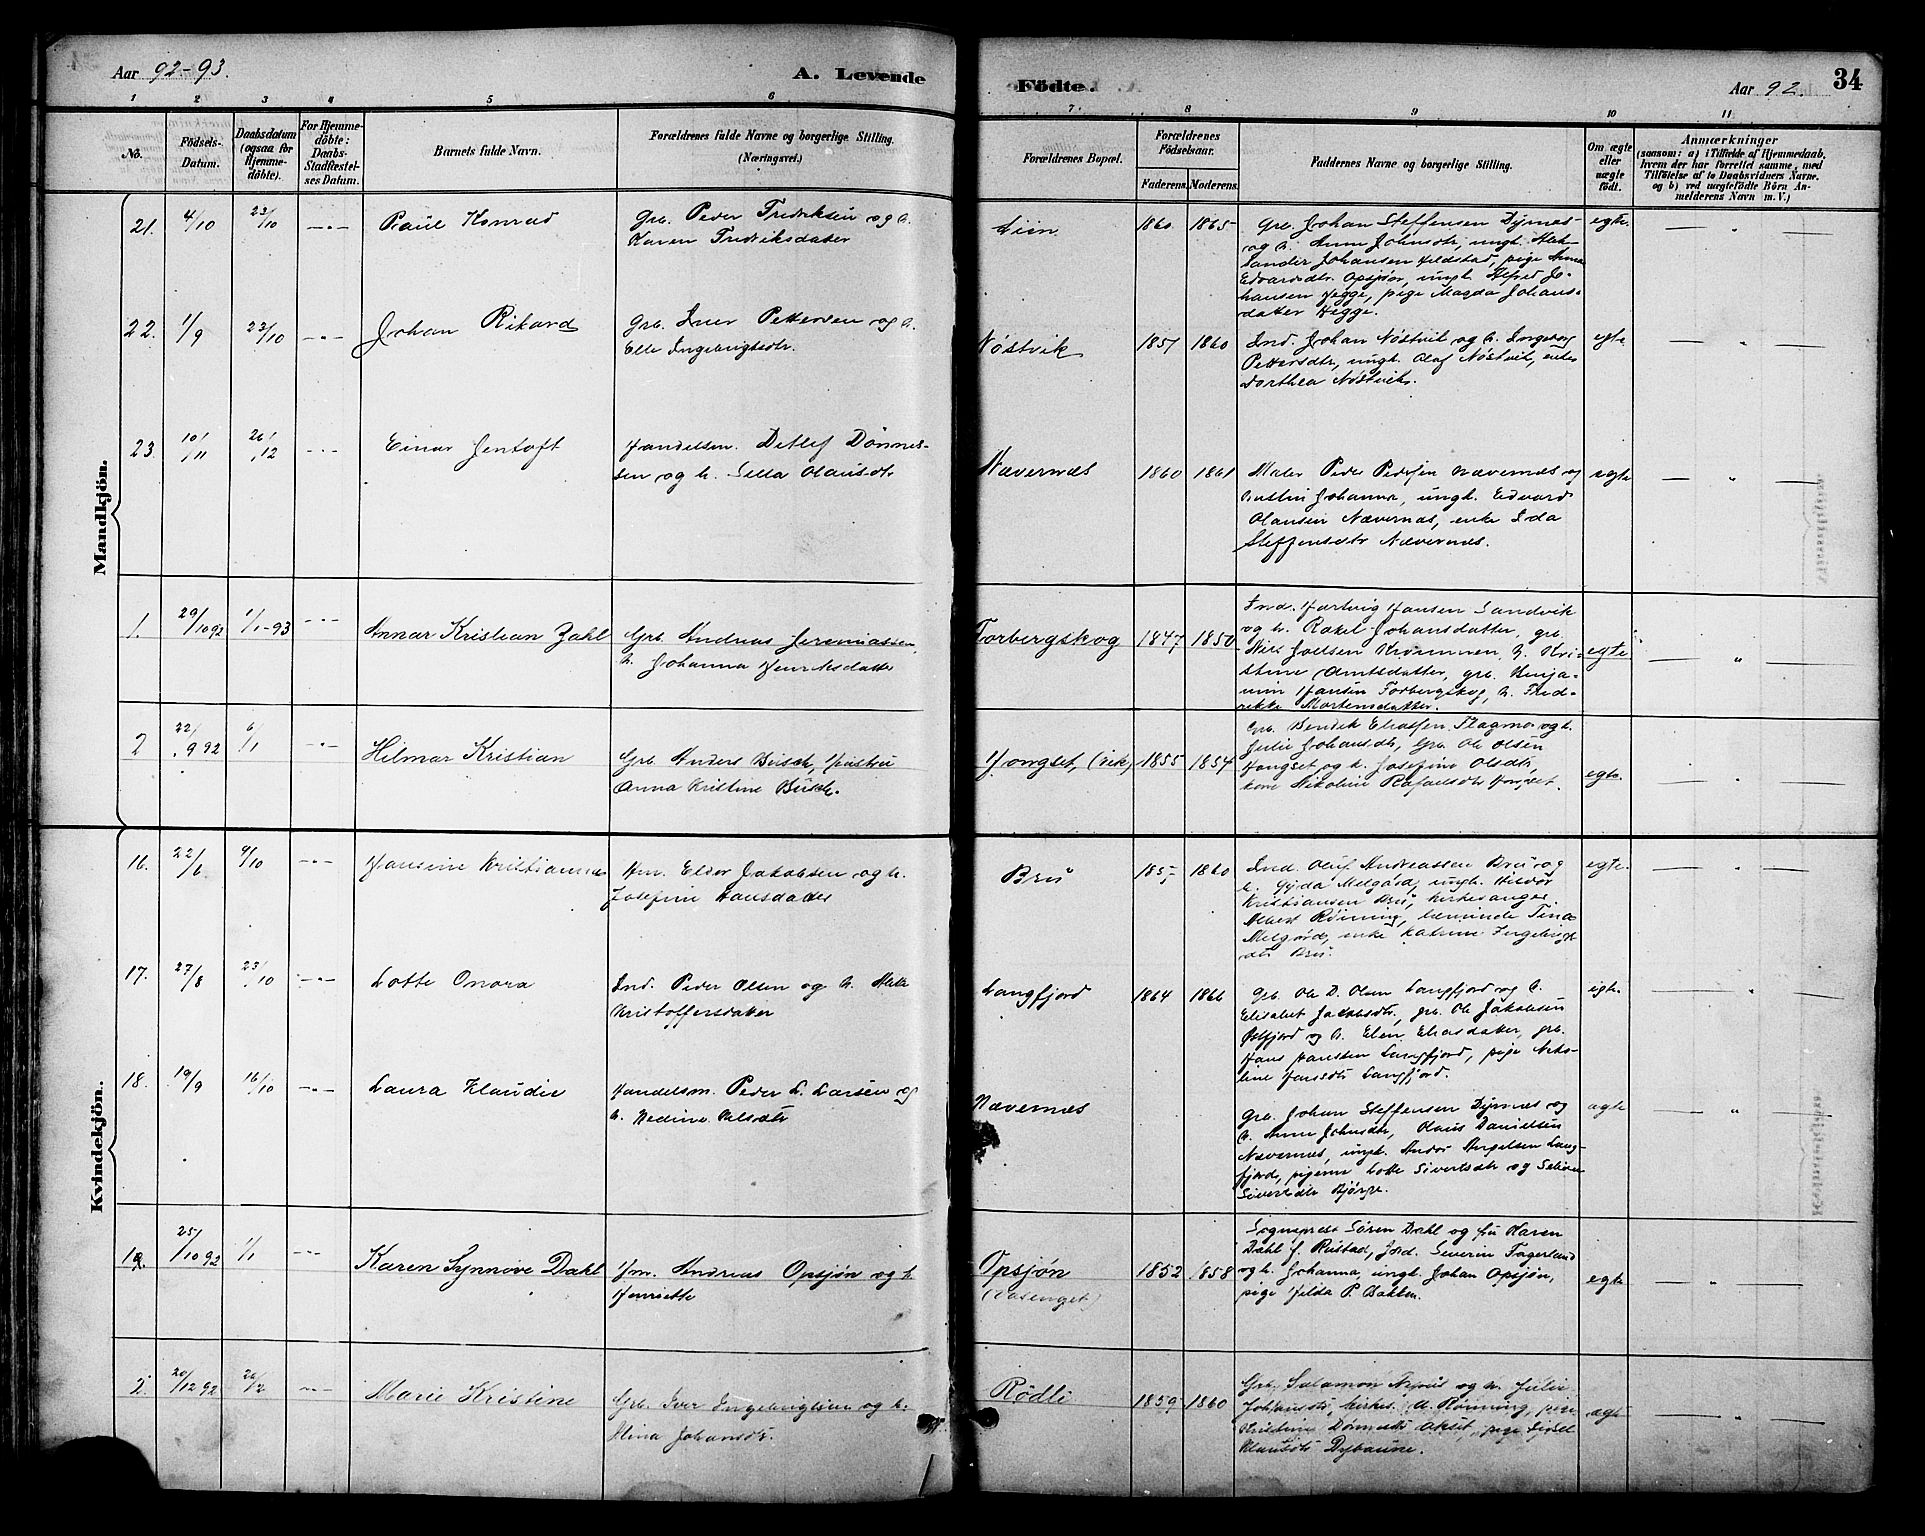 Aar 92-93.
A. Levende
Födte.
Aar 92.
34
1 2 3 4 5 6 7. 8 9 10 11
No.
Födsels-Datum.
Daabsdatum (ogsaa for Hjemme-döbte).
For Hjemme-döbte: Daabs-Stadfæstel-ses Datum.
Barnets fulde Navn.
Forældrenes fulde Navne og borgerlige Stilling. (Næringsvei.)
Forældrenes Bopæl.
Forældrenes Födselsaar.
Faderens. Moderens.
Faddernes Navne og borgerlige Stilling.
Om ægte eller uægte födt.
Anmærkninger
(saasom: a) i Tilfælde af Hjemmedaab,
hvem der har forrettet samme, med
Tilföielse af to Daabsvidners Navne.
og b) ved uægtefödte Börn An-
melderens Navn m. V.)
Mandkjön.
21. 4/10 23/10 -"- Paul Konrad
Grb. Peder Fredriksen og h.
Karen Fredriksdatter
Lien 1860 1865
Grb. Johan Steffensen Dyrnes
og h. Anna Johnsdtr, ungk. Alek-
sander Johansen Hildstad, pige Anna
Edvardsdtr. Opsjön, ungk. Alfred Jo-
hansen Hegge, pige Magda Johans-
datter Hegge.
egte. — " —
22. 1/9 23/10 -"- Johan Rikard
Grb. Iver Pettersen og h.
Elle Ingebrigtsdtr.
Nöstvik 1857 1860
Ind. Johan Nöstvik og h. Ingeborg
Pettersdtr, ungk. Olaf Nöstvik, enke
Dorthea Nöstvik.
egte — " —
23. 10/11 26/12 -"- Einar Jentoft
Handelsm. Detlef Dönnes-
sen og h. Sella Olausdtr
Nævernæs 1860 1861
Maler Peder Pedersen Nævernæs og
hustru Johanna, ungk. Edvard
Olausen Nævernæs, enke Ida
Steffensdtr Nævernæs.
egte — " —
1. 29/10 92 1/1-93 -"- Annar Kristian Zahl
Grb. Andreas Jeremiassen,
h. Johanna Henriksdatter
Forbergskog 1847 1850
Ind. Hartvig Hansen Sandvik
og h. Rakel Johansdatter, grb.
Nils Joelsen, h. Kri-
stine Arntsdatter, grb. Benja-
min Hansen Forbergskog, h. Fred-
rikke Mortensdatter.
egte — " —
2 22/9 92 6/1 -"- Hilmar Kristian
Grb. Anders Busch, hustru
Anna Kristine Busch.
Hongset, (vik) 1855 1854
Grb. Bendik Eliassen Flagmo og h.
Julie Johansdtr, Grb. Ole Olsen
Hongset og h. Josefine Olsdtr,
kone Nikoline Rafaelsdtr Hongset.
egte. — " —
Kvindekjön.
16. 22/6 9/10 -"- Hansine Kristianna
Hm. Eldor Jakobsen og h.
Josefine Hansdatter
Brü 185 1860
Ind. Oluf Andreassen Brü og
h. Gyda Melgård, ungk. Hildor
Kristiansen Brü, kirkesanger
Albert Rönning, lærerinde Tina
Melgård, enke Katrine Ingebrigt
dtr Brü.
egte. — " —
17. 27/8 23/10 -"- Lotte Onora
Ind. Peder Olsen og h.
Kristoffersdatter
Langfjord 1864 1866
Grb. Ole D. Olsen Langfjord og h.
Elisabet Jakobsdtr, grb. Ole Jakobsen
fjord og h. Elen Eliasdatter, grb.
Hans Hanssen Langfjord, pige Niko-
line Hansdtr Langfjord.
egte. — " —
18. 19/9 16/10 -"- Laura Klaudie
Handelsm. Peder L. Larsen og
h. Hedine Nilsdtr
Nævernæs
Grb. Johan Steffensen Dyrnæs og
h. Anna Johnsdtr, Olaus Danielsen
Nævernæs, ungk. Andor Bergetsen Lang-
fjord, pigerne Lotte Sivertsdtr og Seline
Sivertsdtr Bjönge.
ægte — " —
19. 25/10 92 1/1 -"- Karen Synnöve Dahl
Hm. Andreas Opsjön og h.
Henriette
Opsjön
(Vasenget)
1852 1858
Sogneprest Sören Dahl og fru Karen
Dahl f. Rustad, ford. Severin Fagerland
og h. Johanna, ungk. Johan Opsjön,
pige Hilda P. Bakken.
egte — " —
2. 20/12 92 26/2 -"- Marie Kristine
Grb. Iver Ingebrigtsen og h.
Stina Johansdtr.
Rödli 1859 1860
Grb. Salamon og h. Julie
Johansdtr, kirkes. A. Rönning, pige
Kristine Dönnesdtr, pige Sirsel
Klausdtr Dybaune.
ægte — " —